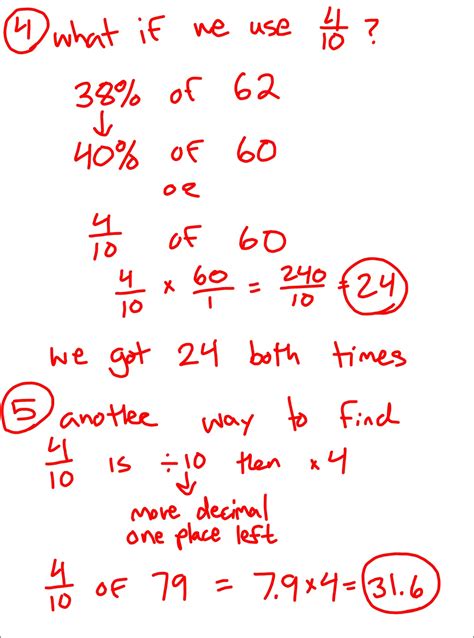 ④ what if we use 4/10 ?
38% of 62
↓
40% of 60
or
4/10 of 60
4/10 × 60/1 = 240/10 = 24
we got 24 both times
⑤ another way to find
4/10 is ÷10 then ×4
↓
move decimal
one place left
4/10 of 79 = 7.9×4= 31.6